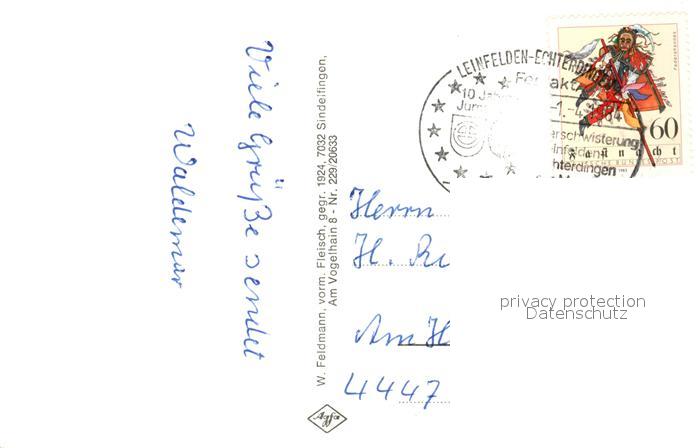 Viele Grüße sendet
Waldemar
W. Feldmann, vorm. Fleisch, gegr. 1924, 7032 Sindelfingen,
Am Vogelhain 8 - Nr. 229/20633
Agfa
LEINFELDEN-ECHTERDINGEN
10
60
Fastnacht
DEUTSCHE BUNDESPOST
Federahannes
erschwisterung
infelden
chterdingen
Herrn
H. Re
Am H
4447
privacy protection
Datenschutz